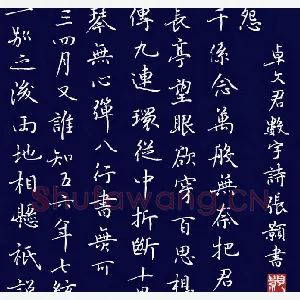 一別之後兩地相懸祇說
三四月又誰知五六年七絃
琴無心彈八行書無可
傳九連環從中折斷十
長亭望眼欲穿百思想
千係念萬般無奈把君
怨
卓文君數字詩張顥書
Shufawang.CN